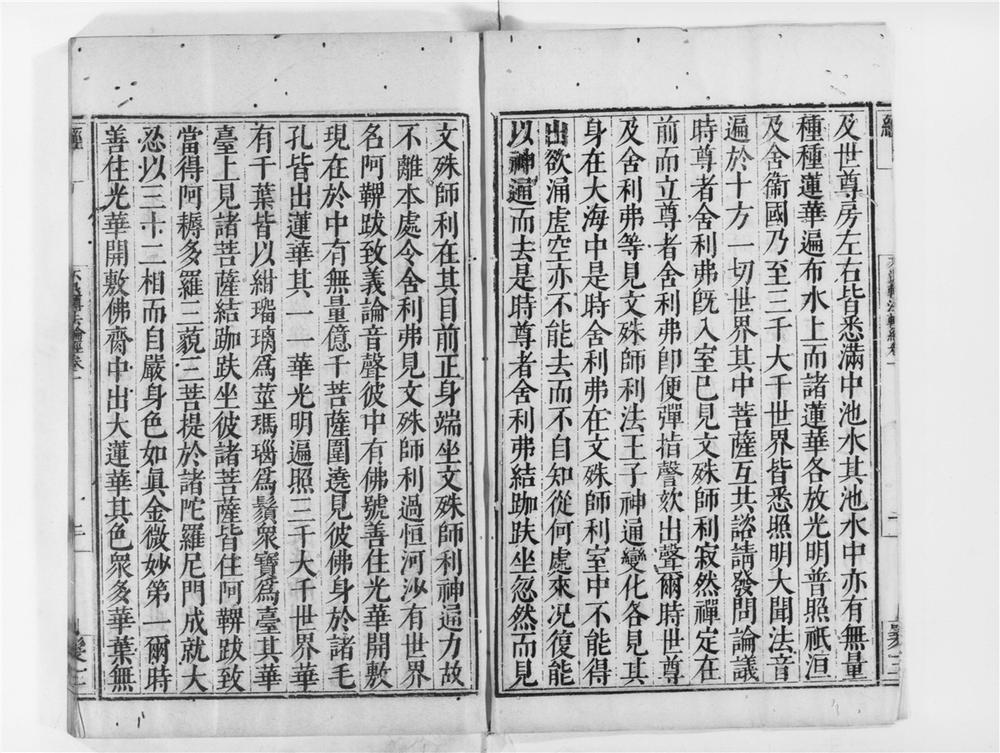 及世尊房左右皆悉滿中池水其池水中亦有無量
種種蓮華遍布水上而諸蓮華各放光明普照祇洹
及舍衞國乃至三千大千世界皆悉照明大聞法音
遍於十方一切世界其中菩薩互共諮請發問論議
時尊者舍利弗旣入室已見文殊師利寂然禪定在
前而立尊者舍利弗卽便彈指謦欬出聲爾時世尊
及舍利弗等見文殊師利法王子神通變化各見其
身在大海中是時舍利弗在文殊師利室中不能得
出欲涌虛空亦不能去而不自知從何處來况復能
以神通而去是時尊者舍利弗結跏趺坐忽然而見
文殊師利在其目前正身端坐文殊師利神通力故
不離本處令舍利弗見文殊師利過恒河沙有世界
名阿鞞跋致義論音聲彼中有佛號善住光華開敷
現在於中有無量億千菩薩圍遶見彼佛身於諸毛
孔皆出蓮華其一一華光明遍照三千大千世界華
有千葉皆以紺瑠璃爲莖瑪瑙爲鬚衆寶爲臺其華
臺上見諸菩薩結跏趺坐彼諸菩薩皆住阿鞞跋致
當得阿耨多羅三藐三菩提於諸陀羅尼門成就大
忍以三十二相而自嚴身色如眞金微妙第一爾時
善住光華開敷佛齊中出大蓮華其色衆多華葉無